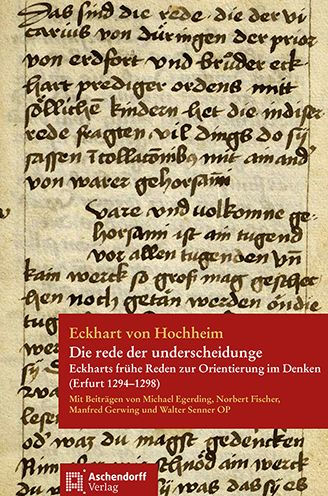 Das sind die rede der vi
carius von düringen der prior
von erdfort und brůder eck
hart prediger ordens mitt
söllichen kindern het die in diser
rede fragten vil dings do sÿ
sassen in collationibus mit ain and
von warer gehorsami
ware und volkomne ge-
horsami ist ain tugend
vor allen tugenden und
kain werck so groß mag geschec
hen noch getan werden on die
Eckhart von Hochheim
Die rede der underscheidunge
Eckharts frühe Reden zur Orientierung im Denken
(Erfurt 1294–1298)
Mit Beiträgen von Michael Egerding, Norbert Fischer,
Manfred Gerwing und Walter Senner OP
od waz du magst gedencken
werck
Aschendorff
Verlag